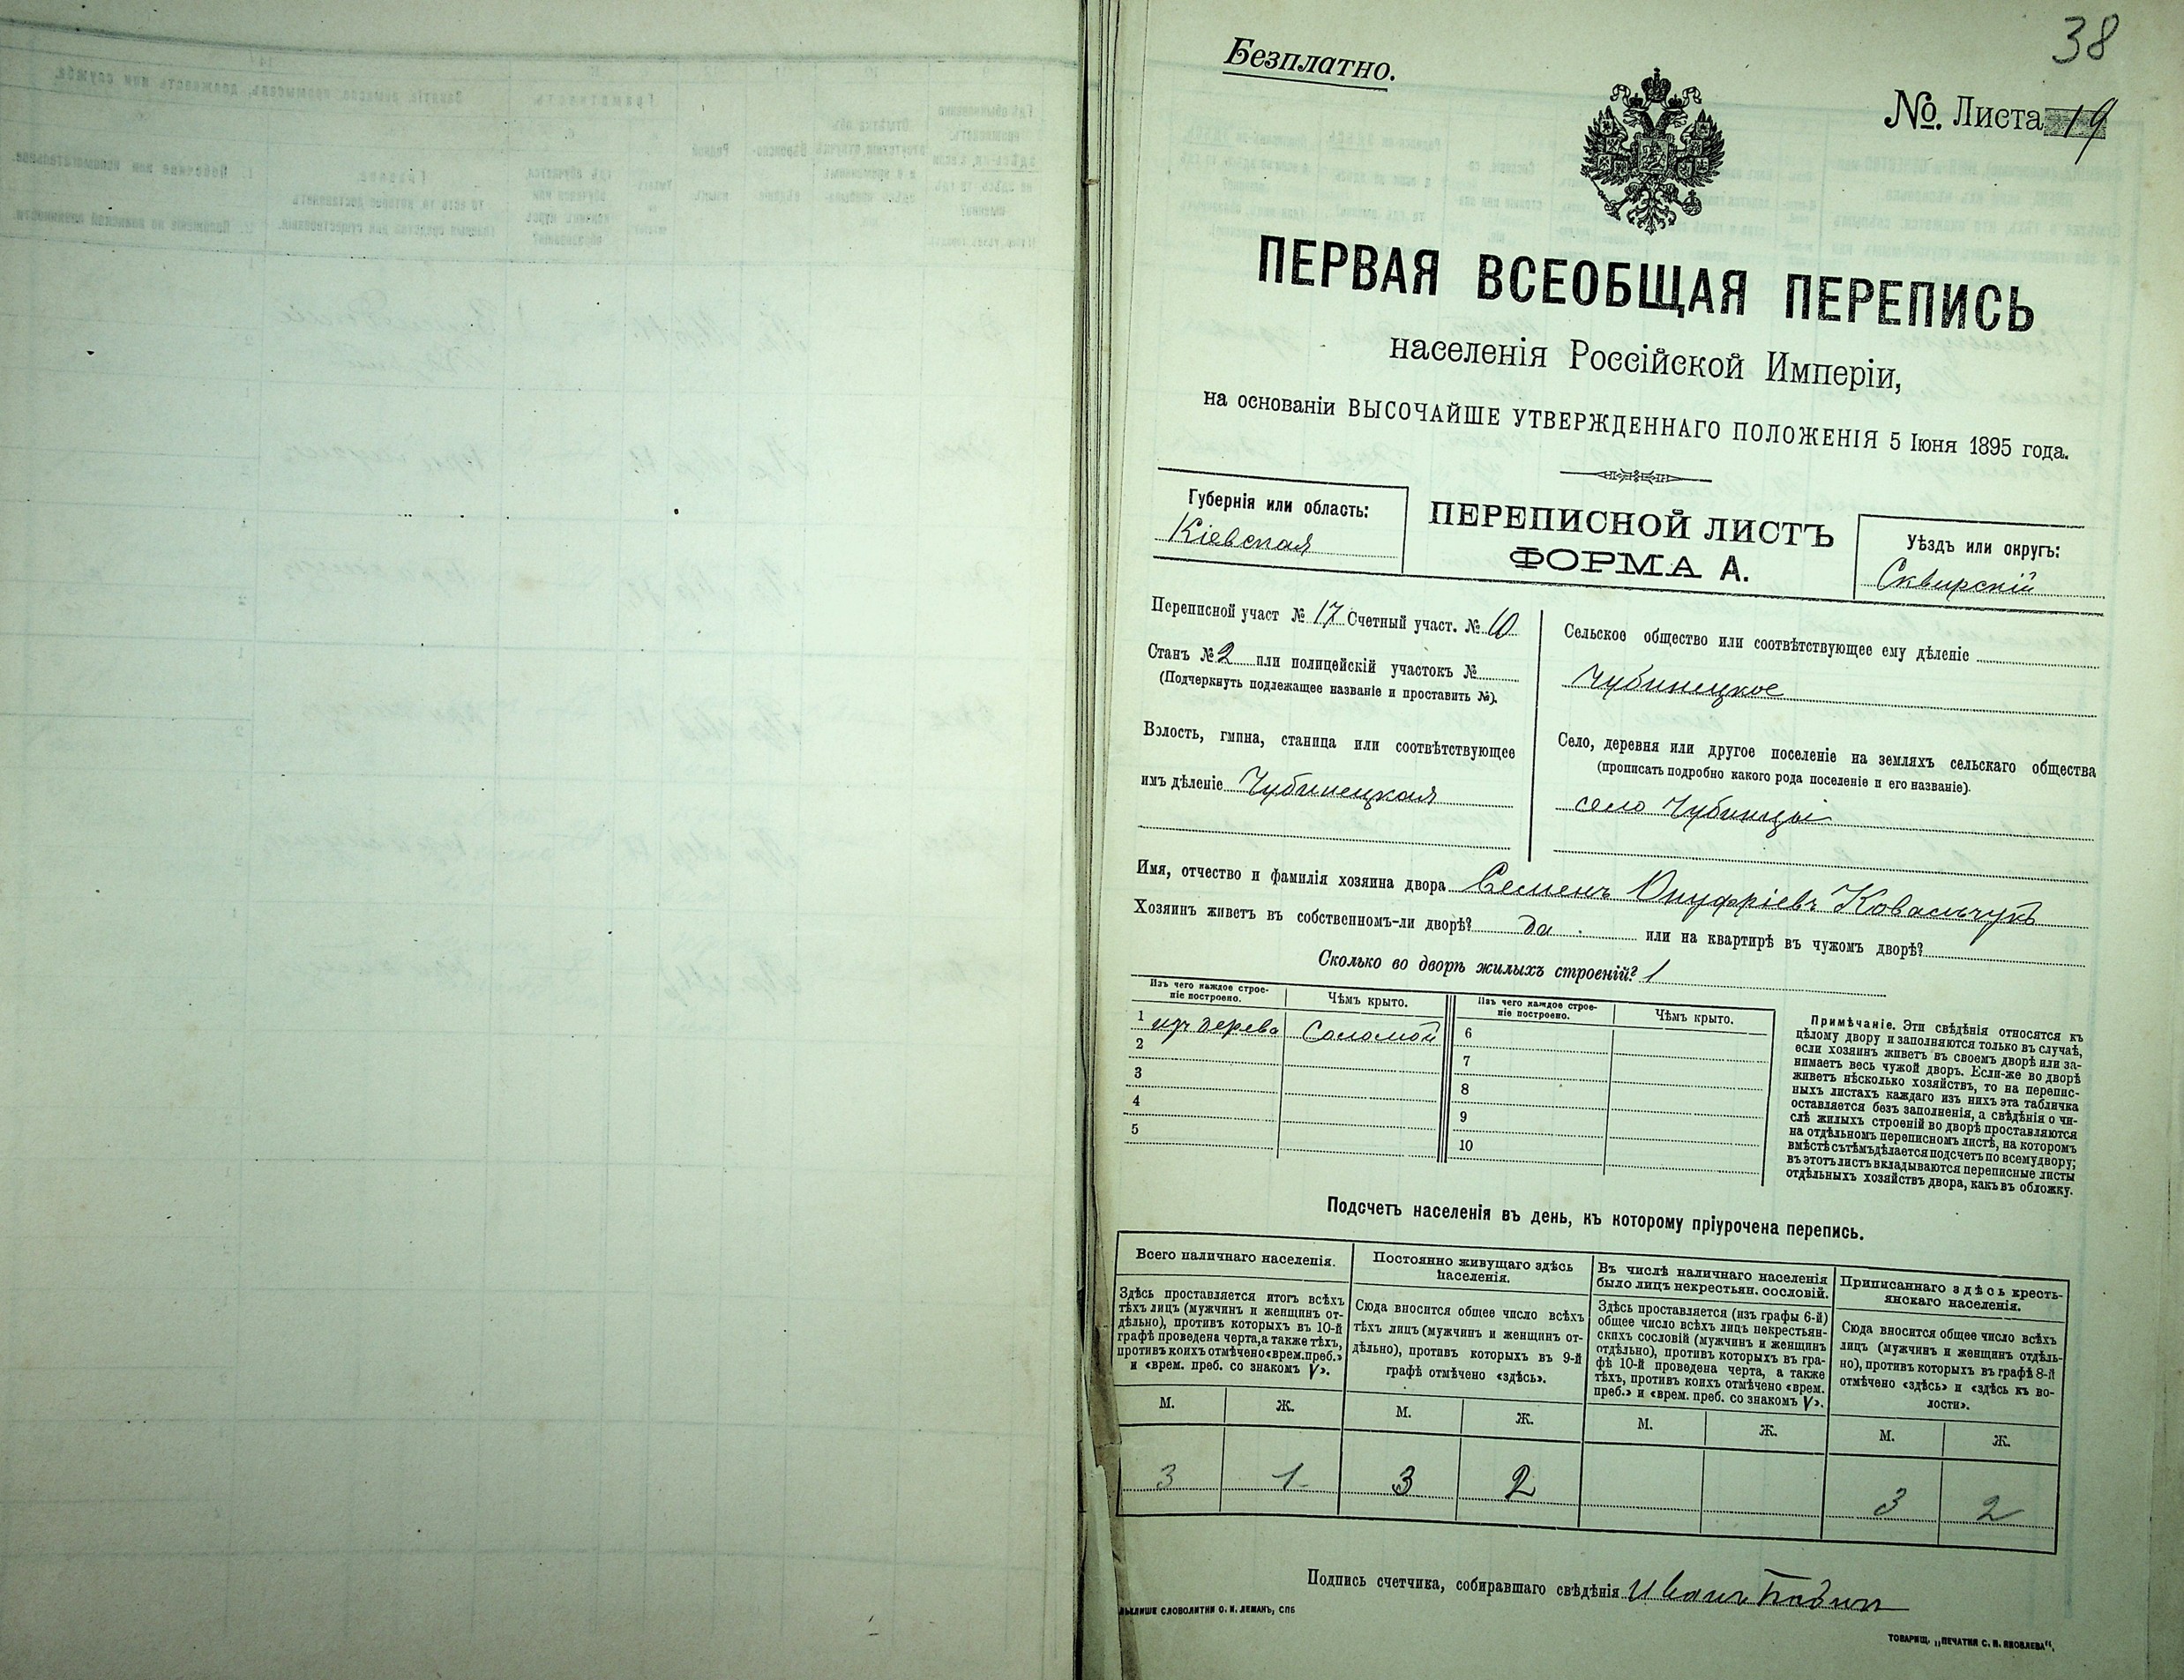 38
Безплатно.
№. Листа 19
ПЕРВАЯ ВСЕОБЩАЯ ПЕРЕПИСЬ
населенія Россійской Имперіи,
на основаніи ВЫСОЧАЙШЕ УТВЕРЖДЕННАГО ПОЛОЖЕНІЯ 5 Іюня 1895 года.
Губернія или область:
Кіевская
ПЕРЕПИСНОЙ ЛИСТЪ
ФОРМА А.
Уѣздъ или округъ:
Сквирскій
Переписной участ № 17 Счетный участ. № 10
Станъ № 2 или полицейскій участокъ №
(Подчеркнуть подлежащее названіе и проставить №).
Волость, гмина, станица или соотвѣтствующее
имъ дѣленіе Чубинецкая
Сельское общество или соотвѣтствующее ему дѣленіе
Чубинецкое
Село, деревня или другое поселеніе на земляхъ сельскаго общества
(прописать подробно какого рода поселеніе и его названіе).
село Чубинцы
Имя, отчество и фамилія хозяина двора Семенъ Онуфріевъ Ковальчукъ
Хозяинъ живетъ въ собственномъ-ли дворѣ? да или на квартирѣ въ чужомъ дворѣ?
Сколько во дворѣ жилыхъ строеній? 1
Изъ чего каждое строе-
ніе построено.
Чѣмъ крыто.
Изъ чего каждое строе-
ніе построено.
Чѣмъ крыто.
1 изъ дерева Соломой 6
2 7
3 8
4 9
5 10
Примѣчаніе. Эти свѣдѣнія относятся къ
цѣлому двору и заполняются только въ случаѣ,
если хозяинъ живетъ въ своемъ дворѣ или за-
нимаетъ весь чужой дворъ. Если-же во дворѣ
живетъ нѣсколько хозяйствъ, то на перепис-
ныхъ листахъ каждаго изъ нихъ эта табличка
оставляется безъ заполненія, а свѣдѣнія о чи-
слѣ жилыхъ строеній во дворѣ проставляются
на отдѣльномъ переписномъ листѣ, на которомъ
вмѣстѣ съ тѣмъ дѣлается подсчетъ по всему двору;
въ этотъ листъ вкладываются переписные листы
отдѣльныхъ хозяйствъ двора, какъ въ обложку.
Подсчетъ населенія въ день, къ которому пріурочена перепись.
Всего наличнаго населенія.
Здѣсь проставляется итогъ всѣхъ
тѣхъ лицъ (мужчинъ и женщинъ от-
дѣльно), противъ которыхъ въ 10-й
графѣ проведена черта, а также тѣхъ,
противъ коихъ отмѣчено «врем. преб.»
и «врем. преб. со знакомъ V».
Постоянно живущаго здѣсь
населенія.
Сюда вносится общее число всѣхъ
тѣхъ лицъ (мужчинъ и женщинъ от-
дѣльно), противъ которыхъ въ 9-й
графѣ отмѣчено «здѣсь».
Въ числѣ наличнаго населенія
было лицъ некрестьян. сословій.
Здѣсь проставляется (изъ графы 6-й)
общее число всѣхъ лицъ некрестьян-
скихъ сословій (мужчинъ и женщинъ
отдѣльно), противъ которыхъ въ гра-
фѣ 10-й проведена черта, а также
тѣхъ, противъ коихъ отмѣчено «врем.
преб.» и «врем. преб. со знакомъ V».
Приписаннаго здѣсь кресть-
янскаго населенія.
Сюда вносится общее число всѣхъ
лицъ (мужчинъ и женщинъ отдѣль-
но), противъ которыхъ въ графѣ 8-й
отмѣчено «здѣсь» и «здѣсь къ во-
лости».
М. Ж. М. Ж. М. Ж. М. Ж.
3 1 3 2 3 2
Подпись счетчика, собиравшаго свѣдѣнія Иванъ
СЛОВОЛИТНИ О. И. ЛЕМАНЪ, СПБ
ТОВАРИЩ. „ПЕЧАТНЯ С. П. ЯКОВЛЕВА“.